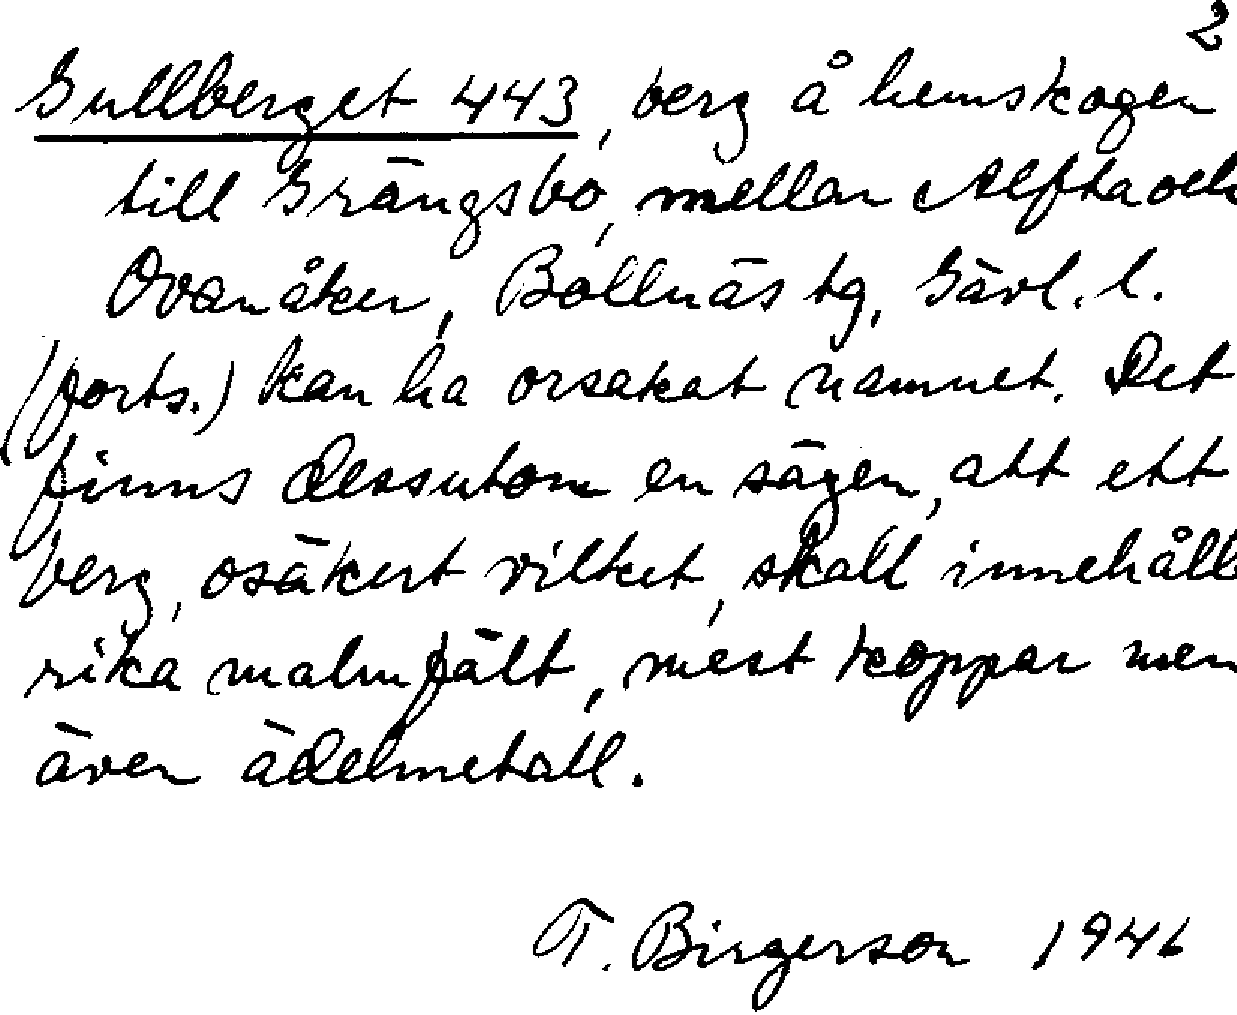 2
Gullberget 443, berg å hemskogen
till Grängsbo, mellan Alfta och
Ovanåker, Bollnäs tg, Gävl. l.
(forts.) kan ha orsakat namnet. Det
finns dessutom en sägen, att ett
berg, osäkert vilket, skall innehåll
rika malmfält, mest koppar men
även ädelmetall.
T. Birgerson 1946